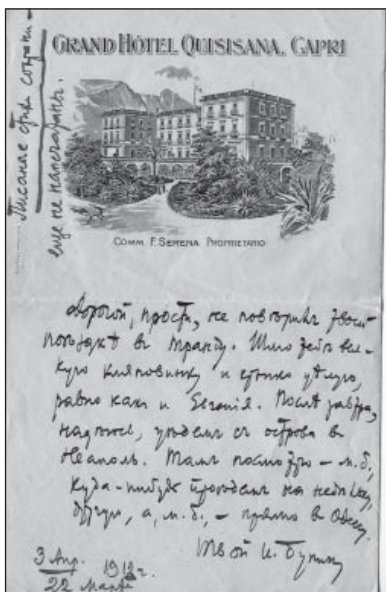 Писанье стра сохрани –
еще не напечатаны.
GRAND HÔTEL QUISISANA, CAPRI
COMM. F. SERENA PROPRIETARIO
дорогой, прости, не повторил твоей
поездки в
и крепко целую,
равно как и Евгенія. Послѣ завтра,
надѣюсь, уѣдем съ острова в
Неаполь. Там посмотрю – м.б.,
куда-нибудь проѣдем на недѣлю,
другую, а, м.б., – прямо в Одессу.
Твой И. Бунин
3 Апр. 1912 г.
22 Марта